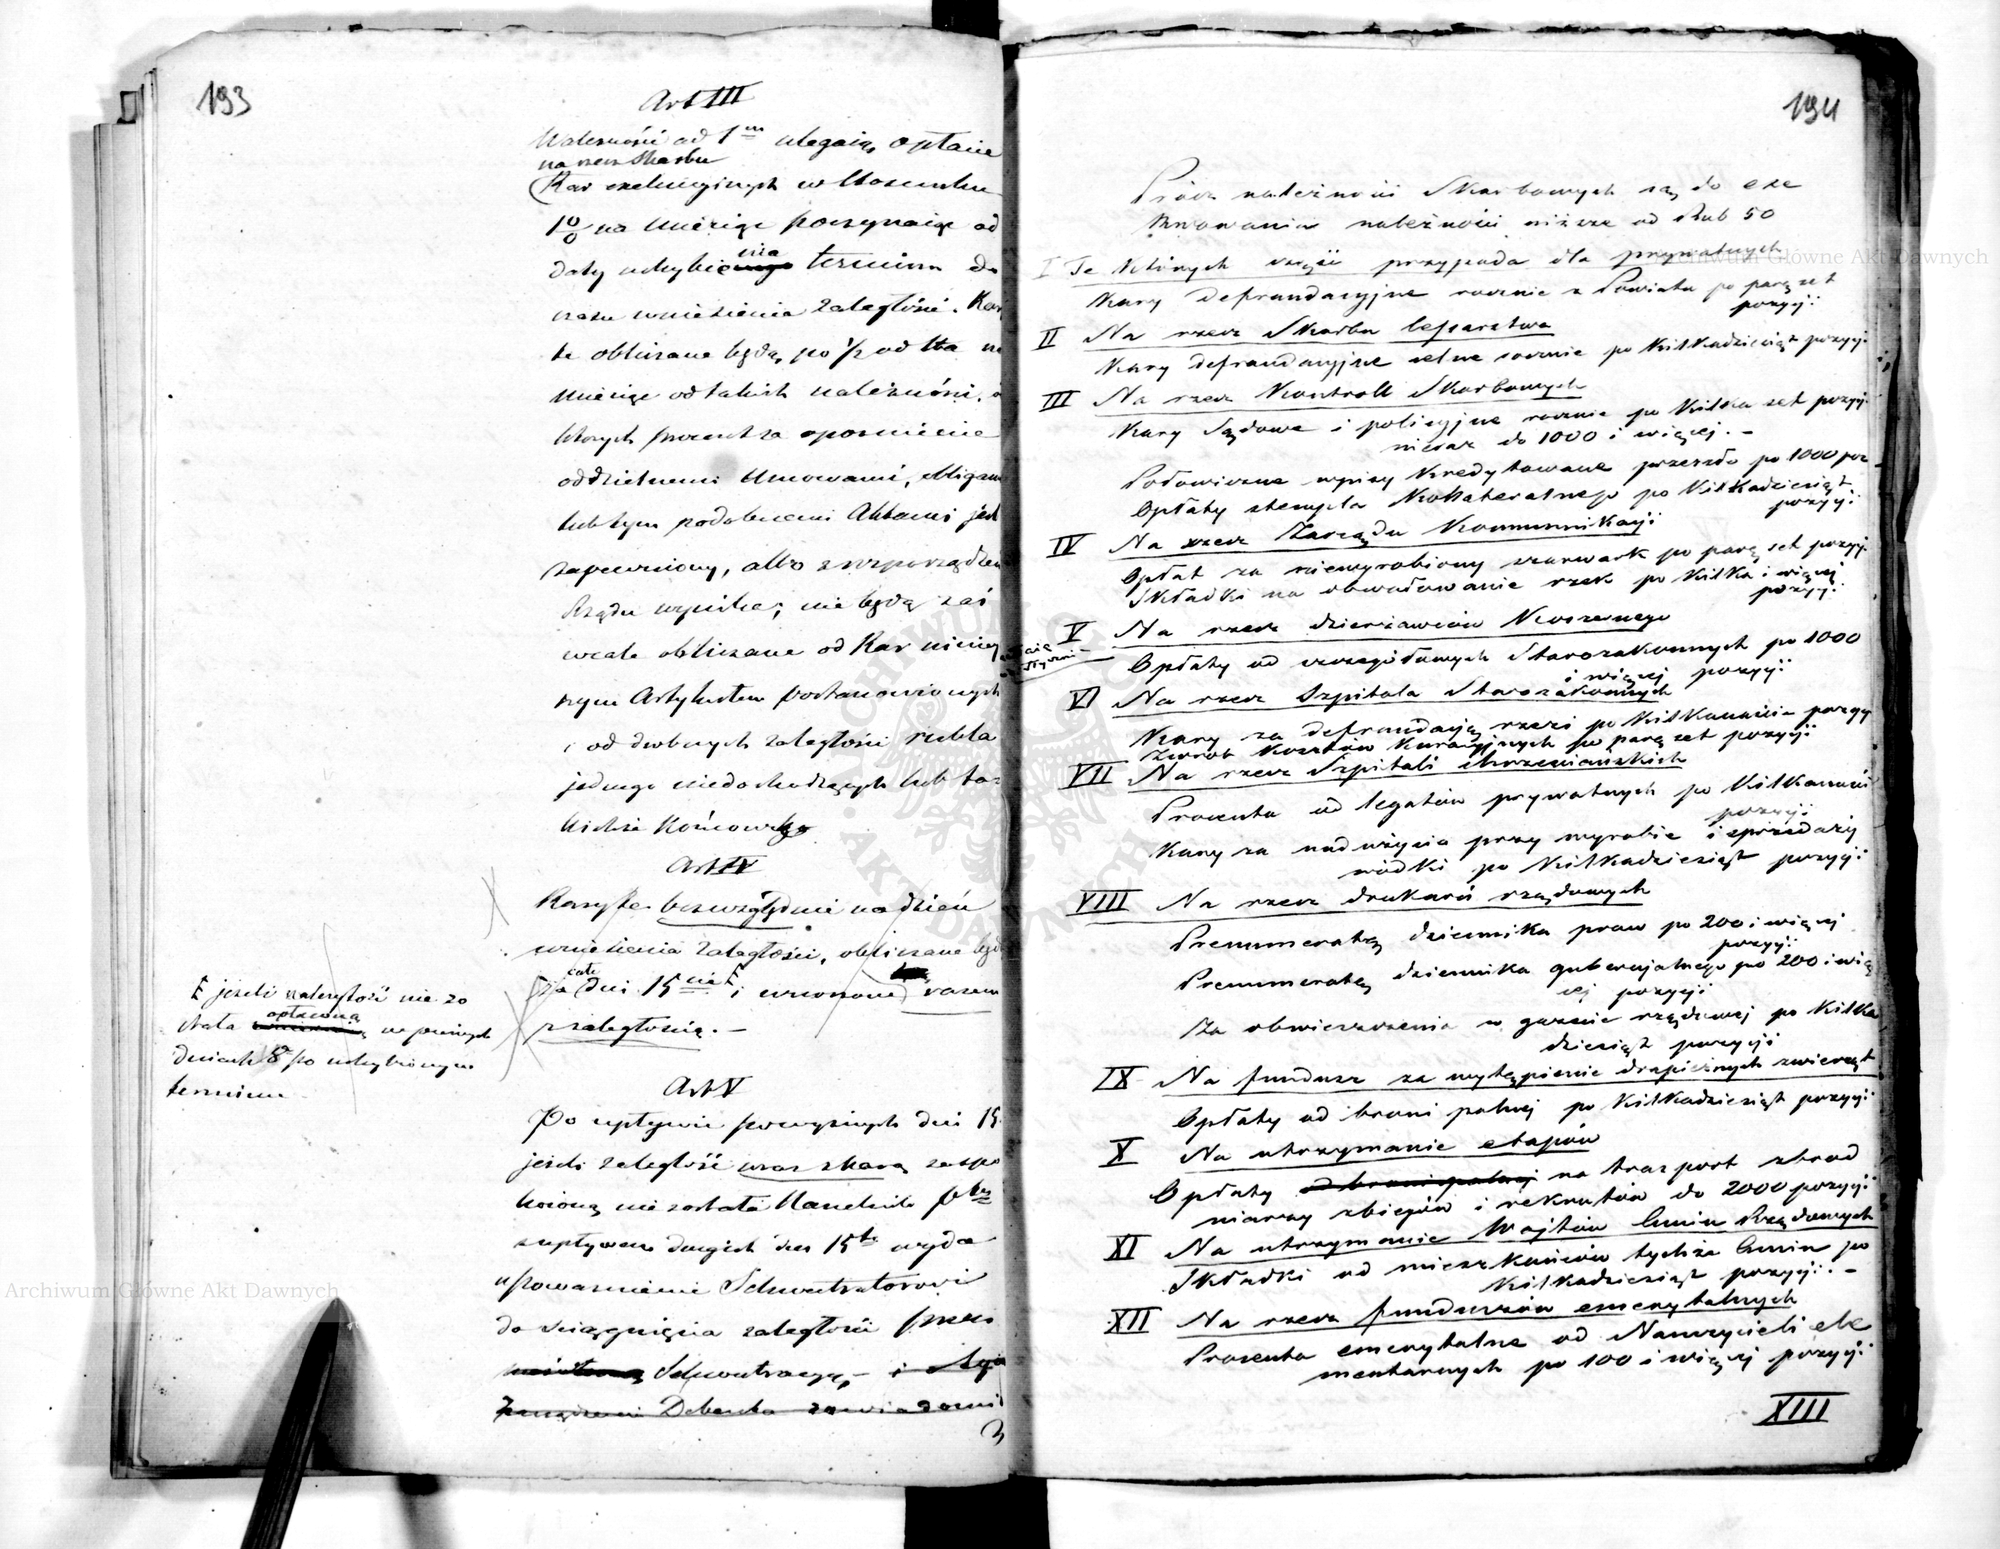 193
Art III
Należności od 1go ulegają opłacie
na rzecz Skarbu
Kar exekucyjnych w stosunku
1% na miesiąc poczynając od
daty uchybienia terminu do
czasu wniesienia zaległości. Kary
te obliczane będą po 1/2 od sta na
miesiąc od takich należności, od
których procent za opóźnienie
oddzielnemi Umowami, obligami
lub tym podobnemi Aktami jest
zapewniony, albo z rozporządzenia
Rządu wynika; nie będą zaś
wcale obliczane od Kar niniej
szym Artykułem postanowionych
i od drobnych zaległości rubla
jednego niedochodzących lub ta-
kichże końcowek
Art IV
Kary te bezwzględnie na dzień
wniesienia zaległości, obliczane będą
za całe dni 15cie i wnoszone razem
z zaległością. -
jeżeli należytość nie zo
stała opłaconą w pierwszych
dniach 8 po uchybionym
terminie
Art V
Po upływie powyższych dni 15
jeżeli zaległość wraz z karą zaspo
kojoną nie została Naczelnik
z upływem drugich dni 15tu wyda
upoważnienie Sekwestratorowi
do ściągnięcia zaległości przez
Sekwestracyą, - i
Debenta zawiadomi
194
Prócz należności Skarbowych są do exe
kwowania należności niższe od Rub 50
I Te których części przypada dla prywatnych
Kary defraudacyjne rocznie z Powiatu po parę set
pozycji
II Na rzecz Skarbu Cesarstwa
Kary defraudacyjne celne rocznie po kilkadziesiąt pozycji
III Na rzecz Kontroll Skarbowych
Kary Sądowe i policyjne rocznie po kilka set pozycji
nieraz do 1000 i więcej. -
Połowiczne wpisy kredytowane przeszło po 1000 poz
Opłaty stempla Kollateralnego po kilkadziesiąt
pozycji
IV Na rzecz Zarządu Kommunikacji
Opłat za niewyrobiony szarwark po parę set pozycji
Składki na obwałowanie rzek po kilka i więcej
pozycji
V Na rzecz dzierżawców Koszernego
Opłaty od szczegółowych Starozakonnych po 1000
i więcej pozycji
VI Na rzecz Szpitala Starozakonnych
Kary za defraudacją rzezi po kilkanaście pozycji
Zwrot Kosztów Kuracyjnych po parę set pozycji
VII Na rzecz Szpitali chrześciańskich
Procenta od legatów prywatnych po kilkanaści
pozycji
Kary za nadużycia przy wyrobie i sprzedaży
wódki po kilkadziesiąt pozycji
VIII Na rzecz drukarń rządowych
Prenumeratę dziennika praw po 200 i więcej
pozycji
Prenumeratę dziennika gubernjalnego po 200 i wię
cej pozycji
Za obwieszczenia w gazecie rządowej po kilka
dziesiąt pozycji
IX Na fundusz za wytępienie drapieżnych zwierząt
Opłaty od broni palnej po kilkadziesiąt pozycji
X Na utrzymanie etapów
Opłaty od broni palnej na trasport zbrod
niarzy zbiegów i rekrutów do 2000 pozycji
XI Na utrzymanie Wójtów Gmin Rządowych
Składki od mieszkańców tychże Gmin po
kilkadziesiąt pozycji. -
XII Na rzecz funduszów emerytalnych
Procenta emerytalne od Nauczycieli ele
mentarnych po 100 i więcej pozycji
XIII
Archiwum Główne Akt Dawnych
Archiwum Główne Akt Dawnych
ARCHIWUM GŁÓWNE AKT DAWNYCH